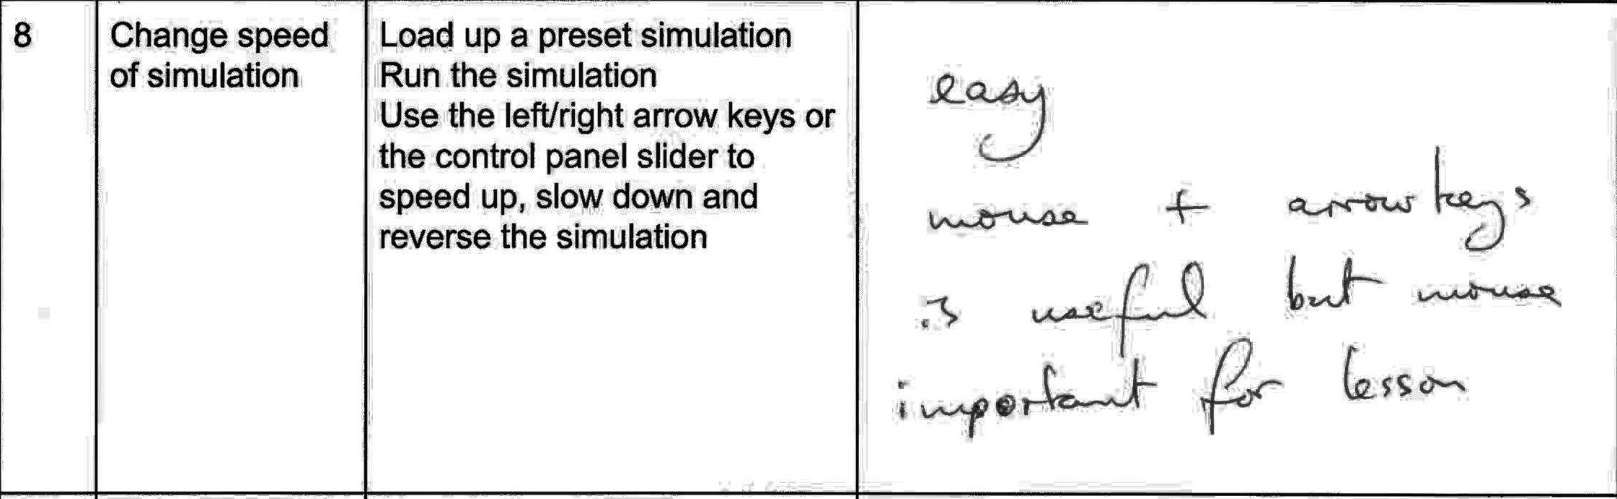 8
Change speed
of simulation
Load up a preset simulation
Run the simulation
Use the left/right arrow keys or
the control panel slider to
speed up, slow down and
reverse the simulation
easy
mouse + arrow keys
is useful but mouse
important for lesson